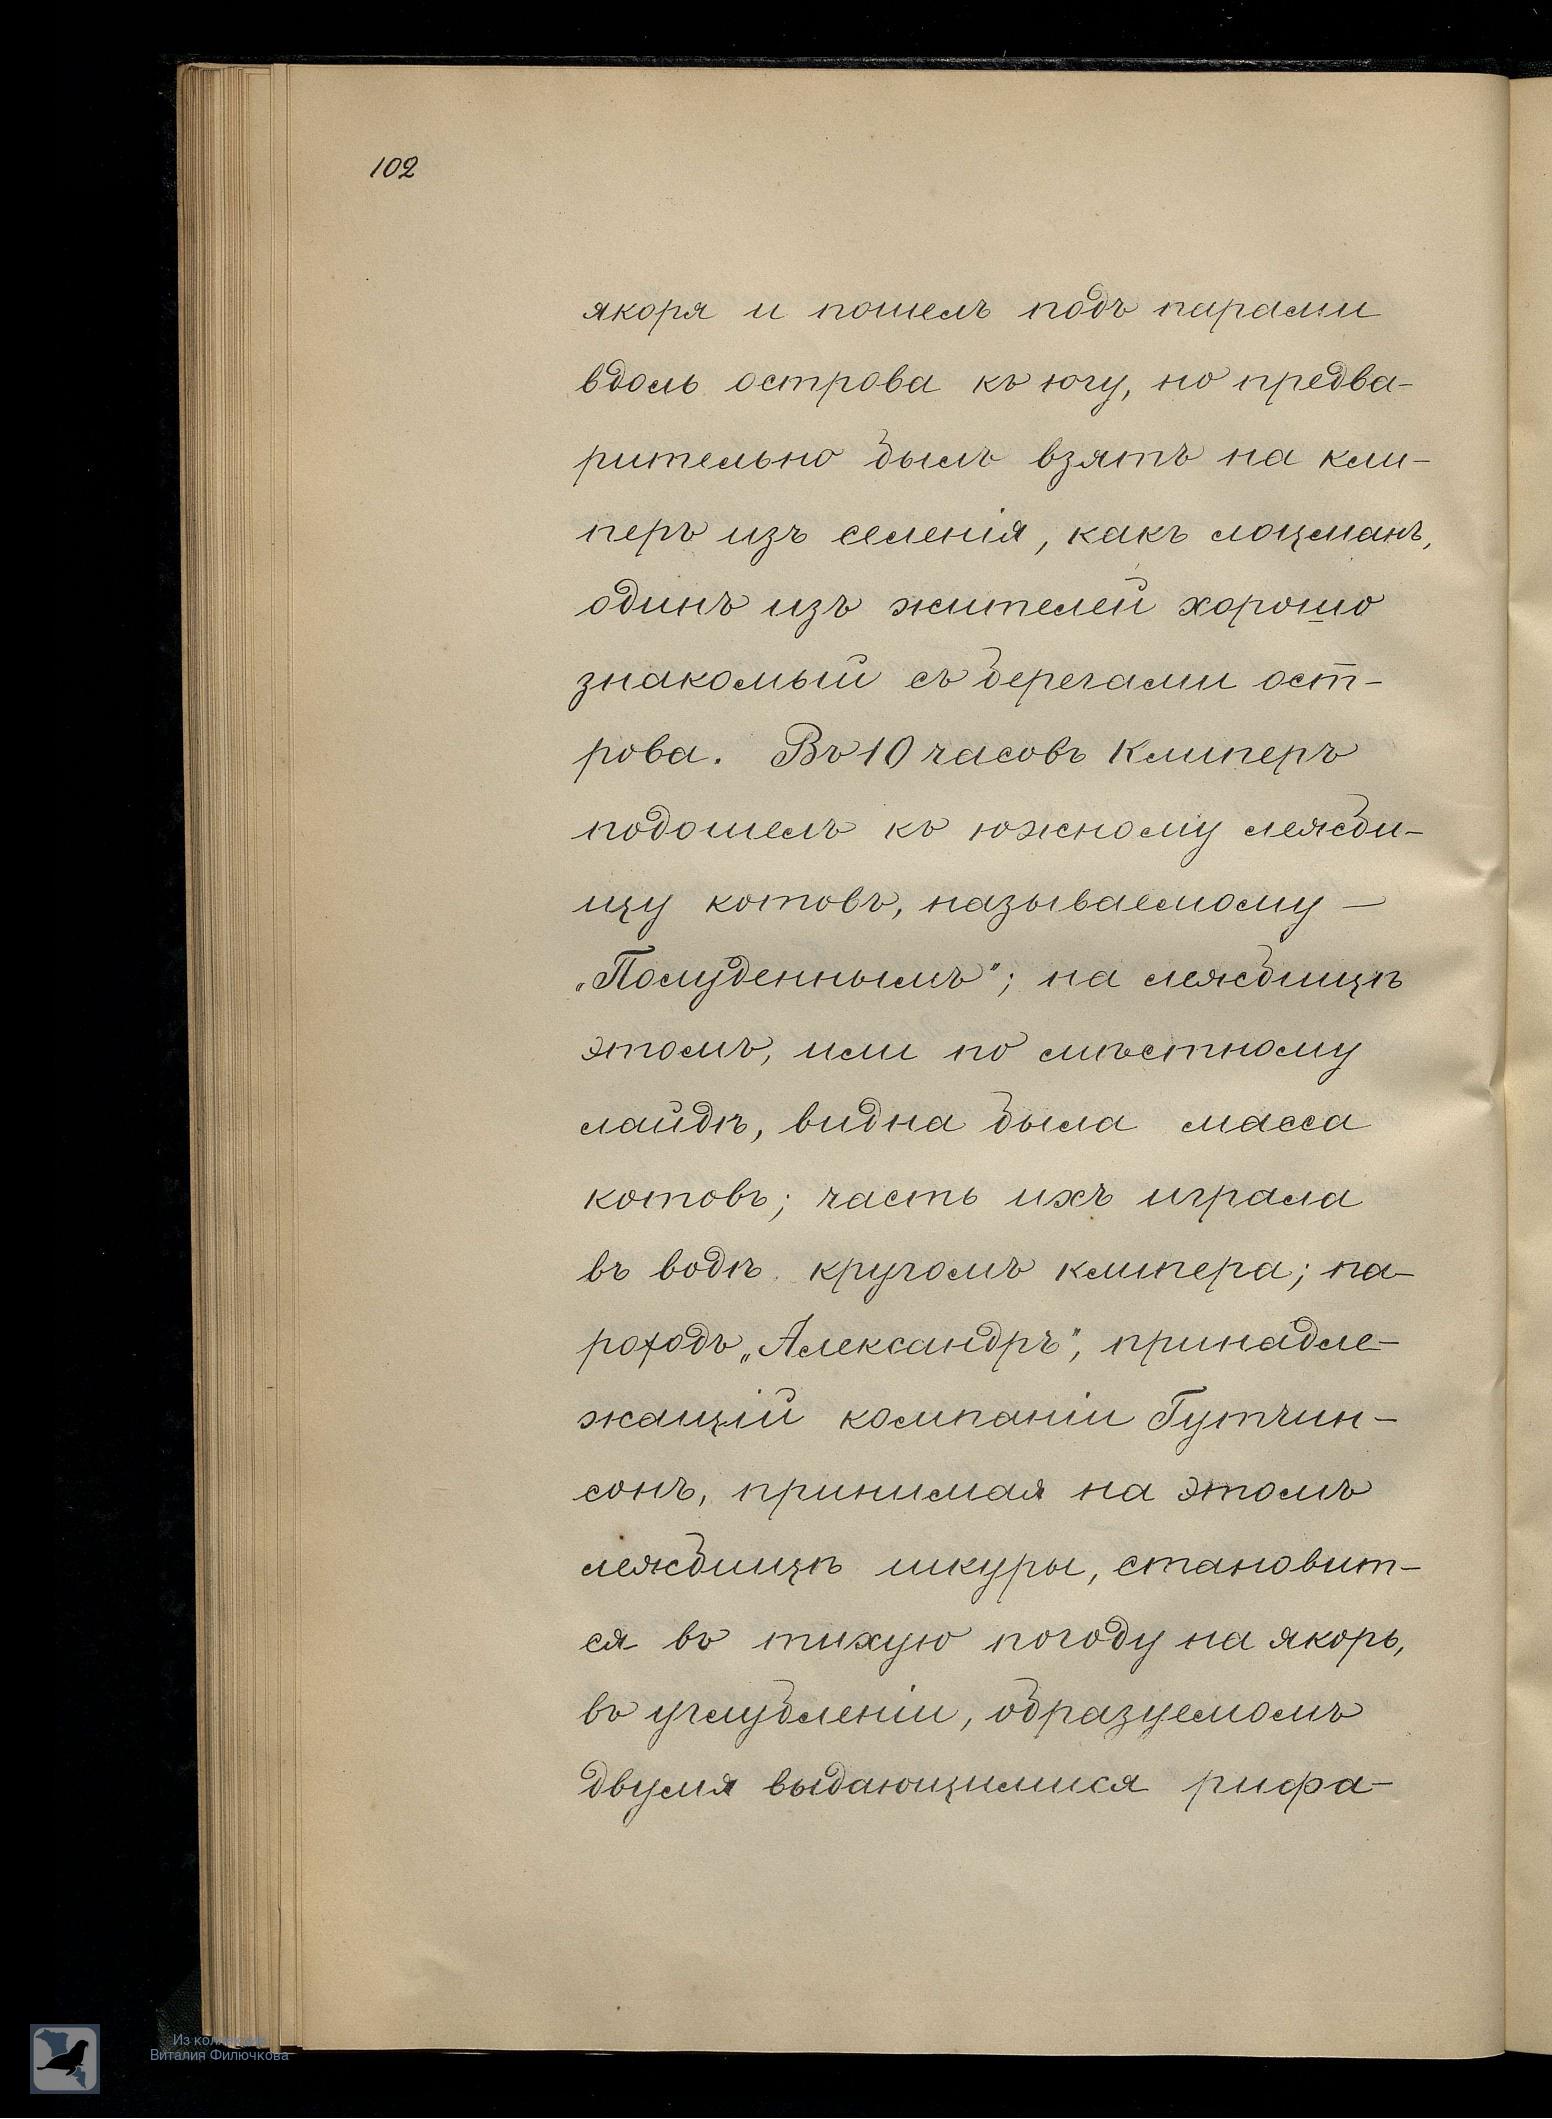 102
якоря и пошелъ подъ парами
вдоль острова къ югу, но предва-
рительно былъ взятъ на кли-
перъ изъ селенія, какъ лоцманъ,
одинъ изъ жителей хорошо
знакомый съ берегами ост-
рова. Въ 10 часовъ Клиперъ
подошелъ къ южному лежби-
щу котовъ, называемому —
„Полуденнымъ"; на лежбищѣ
этомъ, или по мѣстному
лайдѣ, видна была масса
котовъ; часть ихъ играла
въ водѣ кругомъ клипера; па-
роходъ „Александръ", принадле-
жащій компаніи Гутчин-
сонъ, принимая на этомъ
лежбищѣ шкуры, становит-
ся въ тихую погоду на якорь,
въ углубленіи, образуемомъ
двумя выдающимися рифа-
Из коллекции
Виталия Филючкова